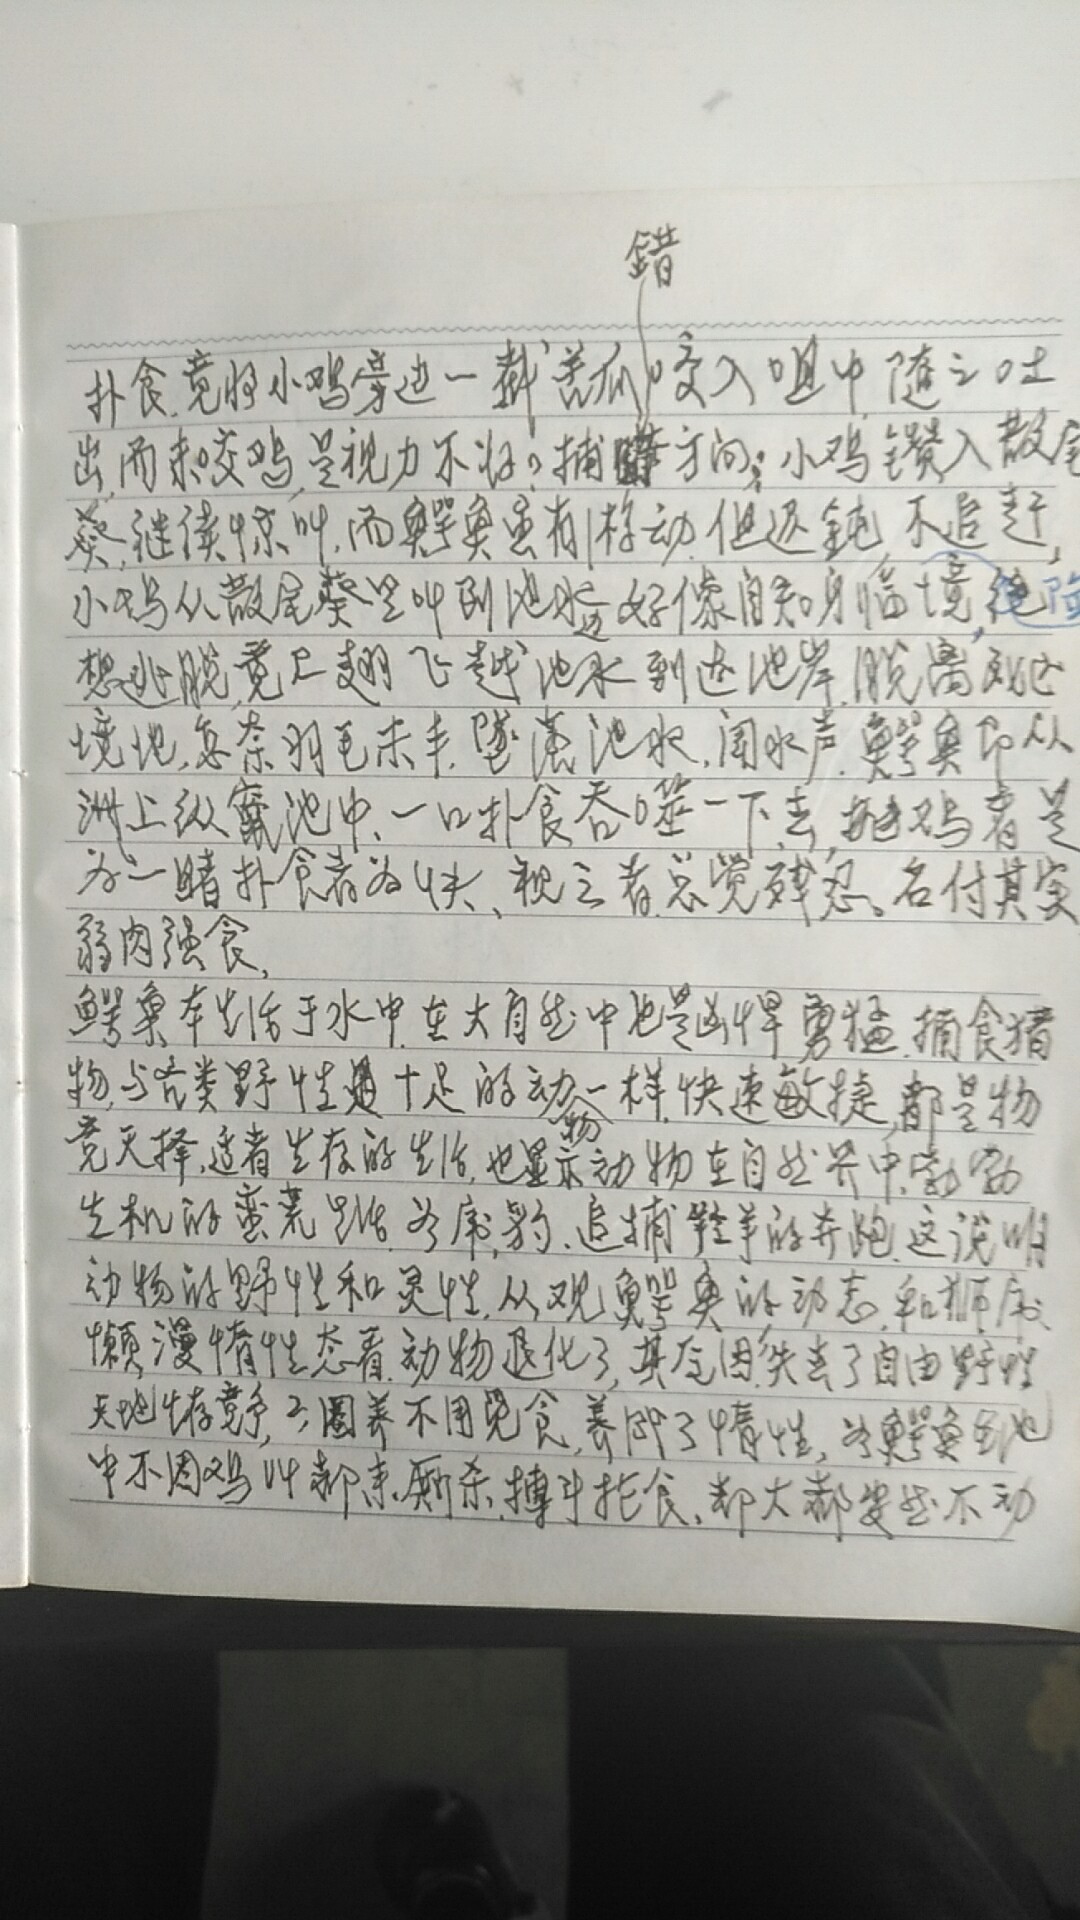 错
扑食,竟将小鸡旁边一截苦瓜咬入咀中,随之吐
出,而未咬鸡,是视力不好?捕 方向;小鸡钻入散尾
葵,继续惊叫,而鳄鱼虽有移动,但迟钝,不追赶,
小鸡从散尾葵里叫到池水边好像自知身临 境,绝
想逃脱,竟上翅飞越池水到达池岸,脱离死亡
境地,怎奈羽毛未丰,坠落池水,闻水声,鳄鱼即从
洲上纵 池中,一口扑食吞噬一下去,抛鸡者是
为一睹扑食者为快、视之者,总觉残忍。名付其实
弱肉强食,
鳄鱼本生活于水中,在大自然中也是凶悍勇猛,捕食猎
物,与各类野性 十足的动物一样,快速敏捷,都是物
竞天择,适者生存的生活,也显示动物在自然界中,勃勃
生机的蛮荒生活.为虎,豹、追捕羚羊的奔跑,这说明
动物的野性和灵性,从观鳄鱼的动态,和狮虎、
懒漫惰性态看,动物退化了,其原因,失去了自由野性
天地生存竞争,2,圈养不用觅食,养成了惰性,为鳄鱼在池
中不因鸡叫都来厮杀,搏斗抢食,却大都安然不动